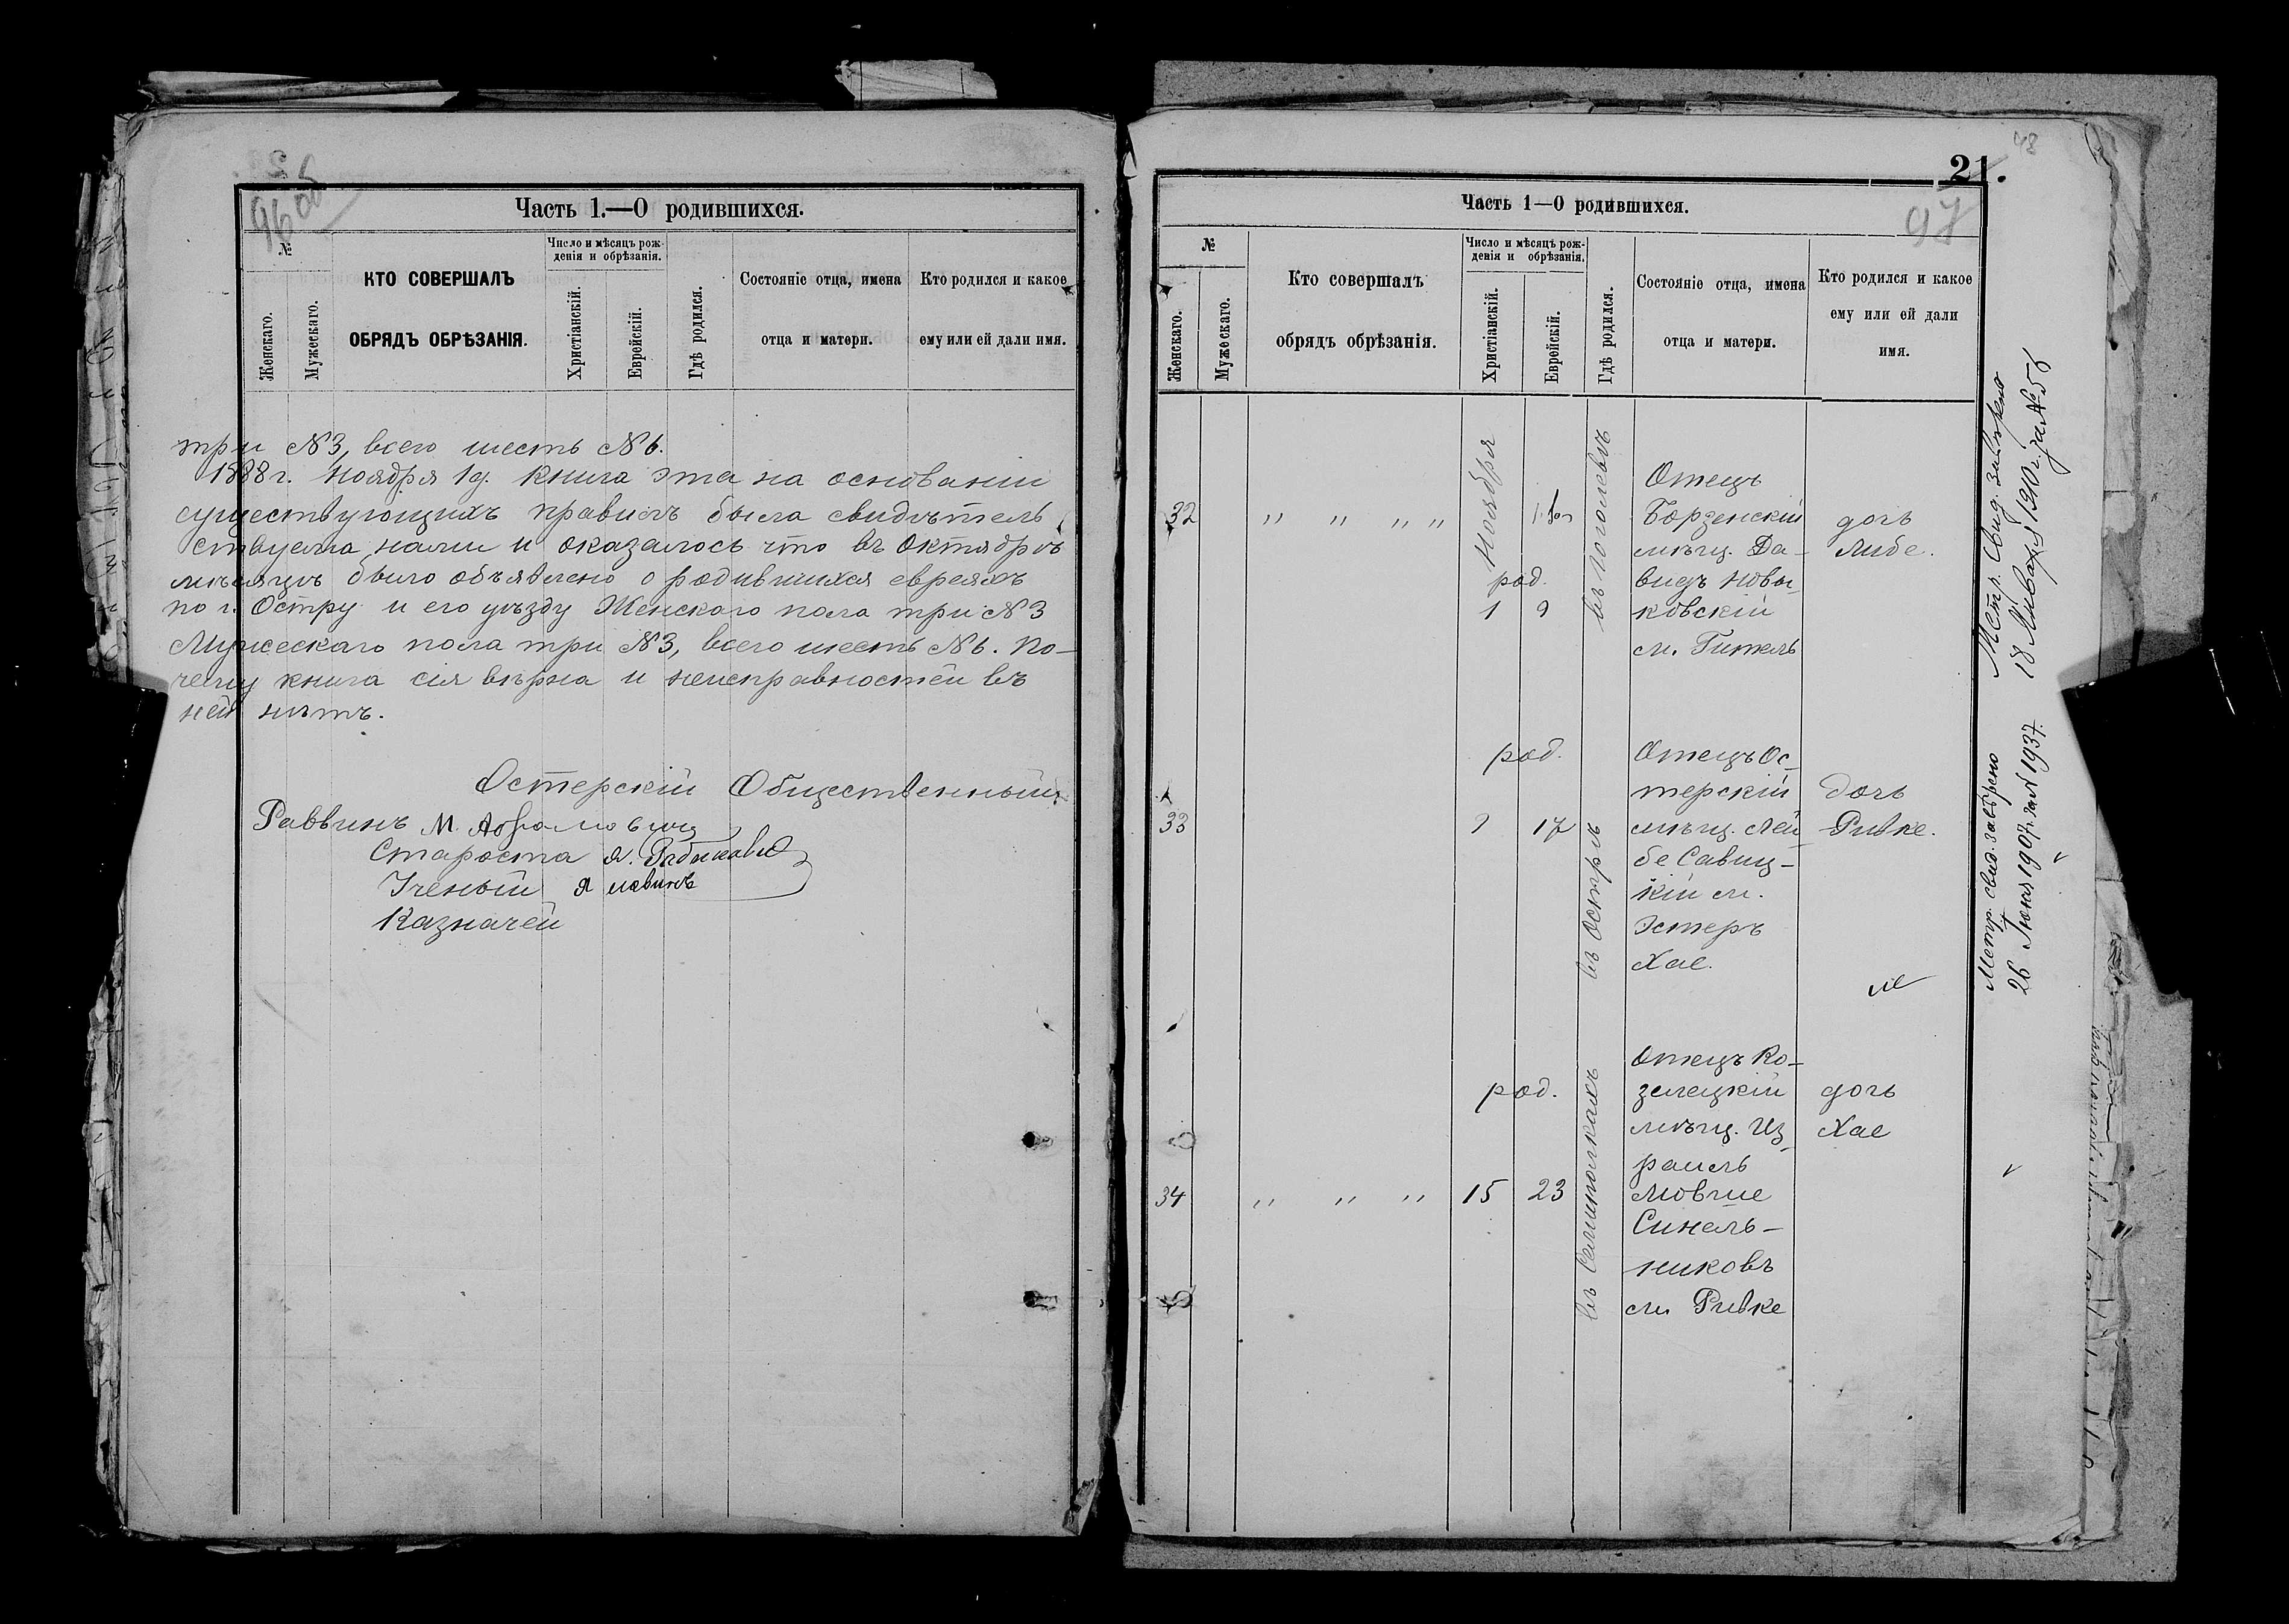 9600б
Часть 1.—О родившихся.
№
Женскаго.
Мужескаго.
КТО СОВЕРШАЛЪ
ОБРЯДЪ ОБРѢЗАНІЯ.
Число и мѣсяцъ рож-
денія и обрѣзанія.
Христіанскій.
Еврейскій.
Гдѣ родился.
Состояніе отца, имена
отца и матери.
Кто родился и какое
ему или ей дали имя.
три №3, всего шесть №6.
1888 г. Ноября 1 д. книга эта на основаніи
существующихъ правилъ была свидѣтель
ствуема нами и оказалось что въ Октябрѣ
мѣсяцѣ было объявлено о родившихся евреяхъ
по г. Остру и его уѣзду Женскаго пола три №3
Мужескаго пола три №3, всего шесть №6. По-
чему книга сія вѣрна и неисправностей въ
ней нѣтъ.
Остерскій Общественный
Раввинъ М. Абрамовичъ
Староста Я.
Ученый Я Левинъ
Казначей
48
21.
97
Часть 1—О родившихся.
№
Женскаго.
Мужескаго.
Кто совершалъ
обрядъ обрѣзанія.
Число и мѣсяцъ рож-
денія и обрѣзанія.
Христіанскій.
Еврейскій.
Гдѣ родился.
Состояніе отца, имена
отца и матери.
Кто родился и какое
ему или ей дали
имя.
32
" " " "
Ноября
род.
1 9
въ Гоголевѣ
Отецъ
Борзенскій
мѣщ. Да-
видъ Новы-
ковскій
м. Гитель
дочь
Либе.
33
род.
9 17
въ Острѣ
Отецъ Ос-
терскій
мѣщ. Лей
бе Савиц-
кій м.
Эстеръ
Хае.
дочь
Ривке.
34
" " "
род.
15 23
въ Семиполкахъ
Отецъ Ко-
зелецкій
мѣщ. Из
раиль
Мовше
Синель-
никовъ
м. Ривке
дочь
Хае
Метр. свид. завѣрено
18 Января 1910 г. за №56
Метр. свид. завѣрено
26 Іюня 1907 за № 1937.